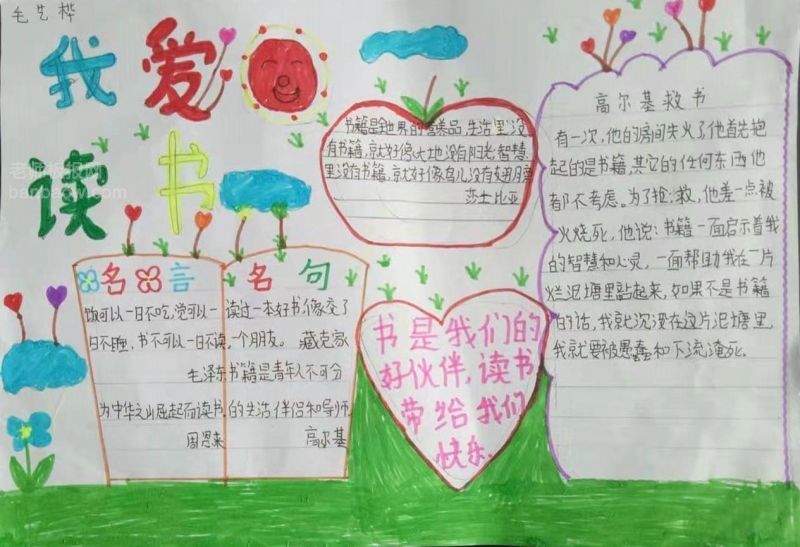 毛艺桦
我爱
读书
老师板报网
banbao.w
书籍是全世界的营养品,生活里没
有书籍,就好像大地没有阳光;智慧
里没有书籍,就好像鸟儿没有翅膀
莎士比亚
名言
饭可以一日不吃,觉可以一
日不睡,书不可以一日不读,
毛泽东
为中华之崛起而读书
周恩来
名句
读过一本好书,像交了
一个朋友。 臧克家
书籍是青年人不可分
的生活伴侣和导师
高尔基
书是我们的
好伙伴,读书
带给我们
快乐.
高尔基救书
有一次,他的房间失火了他首先抱
起的是书籍,其它的任何东西他
都不考虑。为了抢救,他差一点被
火烧死,他说:书籍一面启示着我
的智慧和心灵,一面帮助我在一片
烂泥塘里站起来,如果不是书籍
的话,我就沉没在这片泥塘里,
我就要被愚蠢和下流淹死。